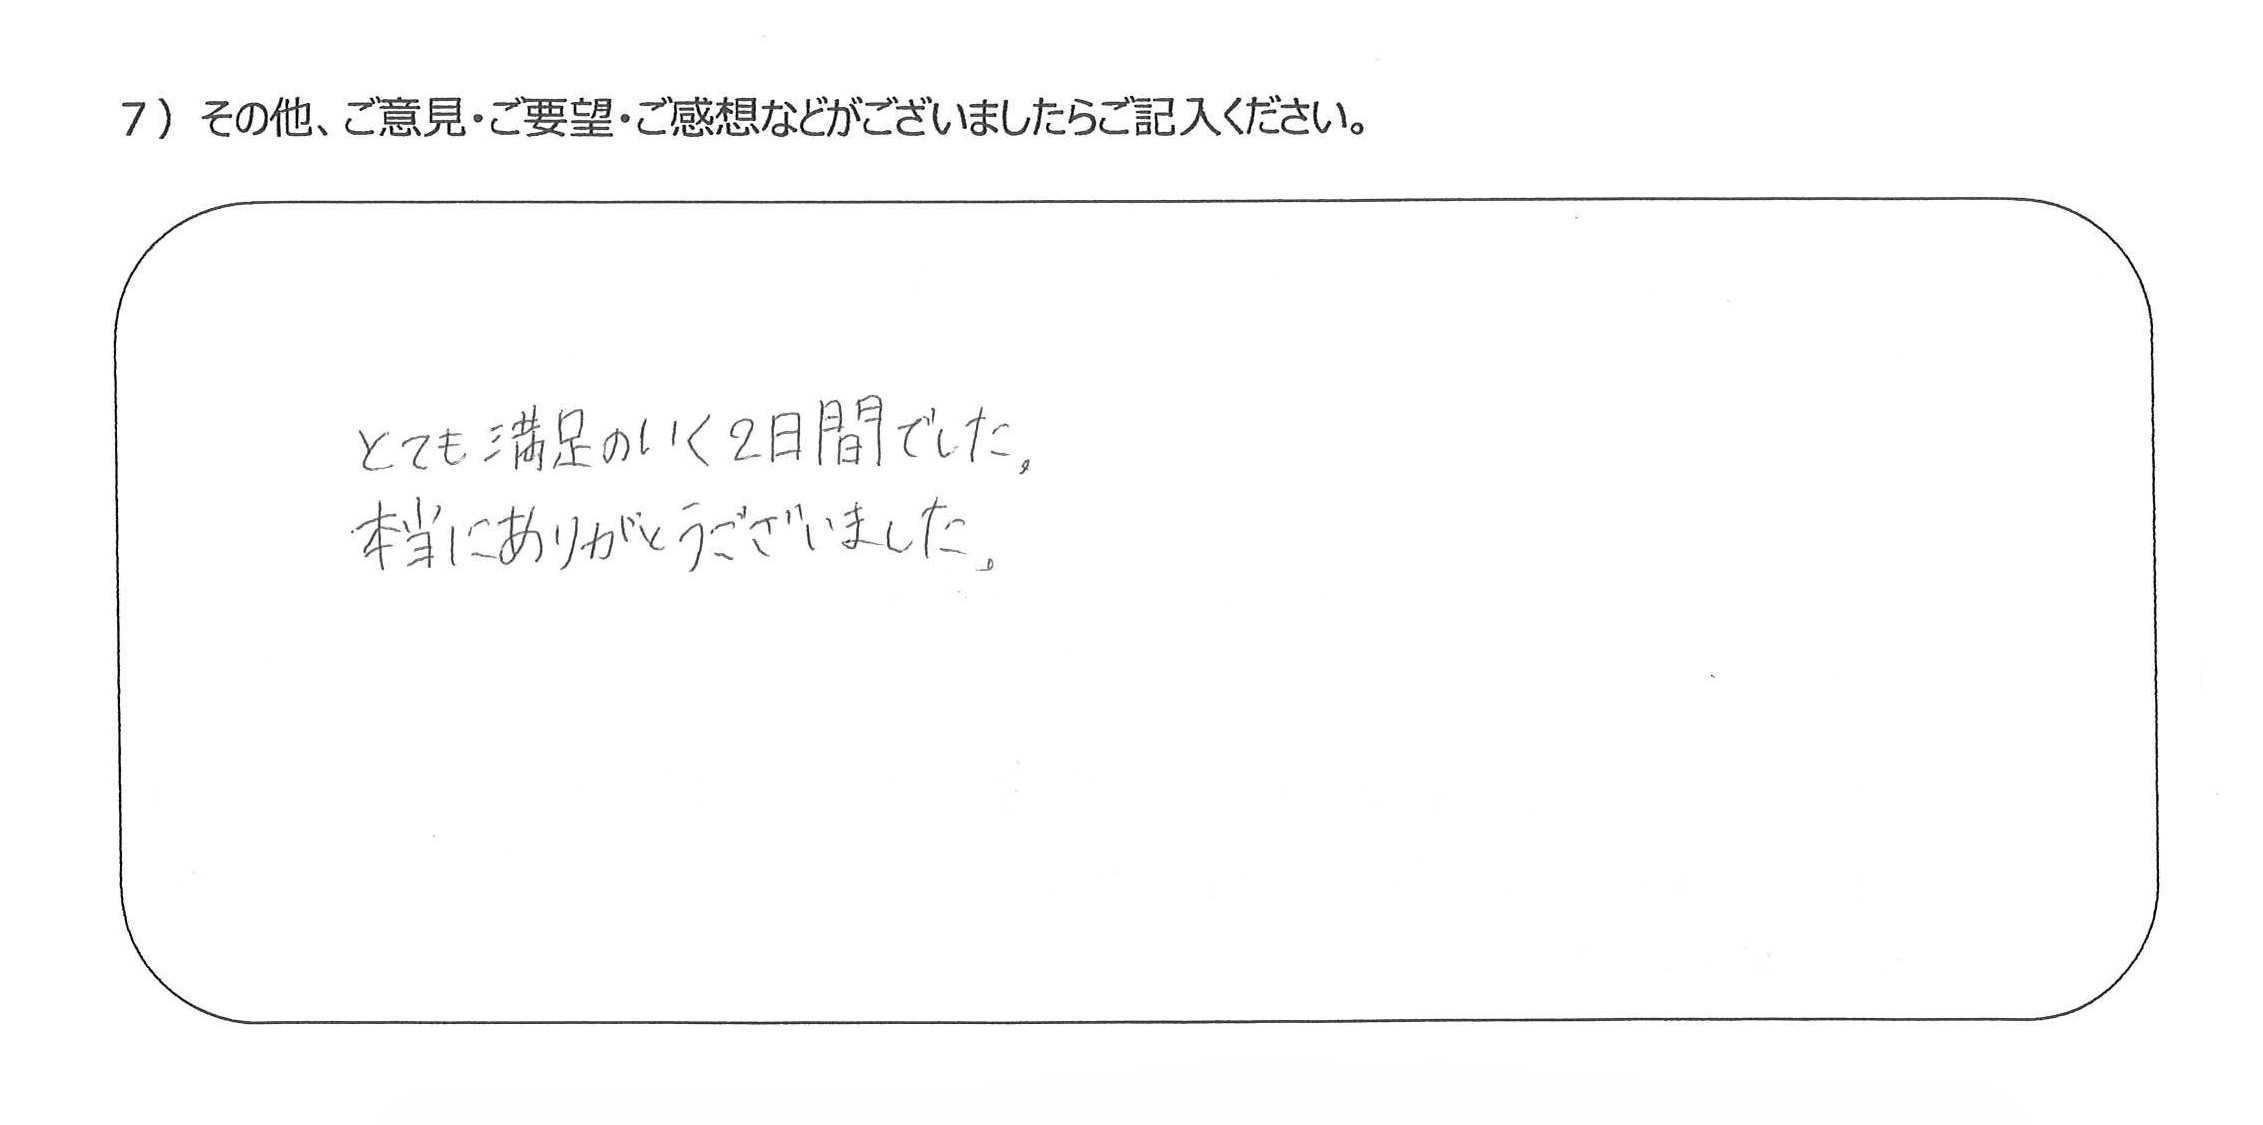 7）その他、ご意見・ご要望・ご感想などがございましたらご記入ください。
とても満足のいく2日間でした。
本当にありがとうございました。